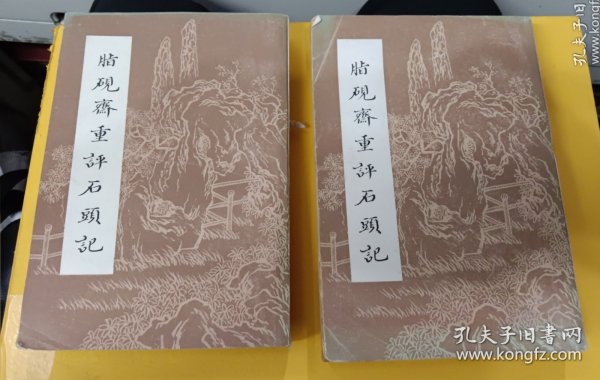 脂砚齋重評石頭記
脂砚齋重評石頭記
孔夫子旧书网
www.kongfz.com